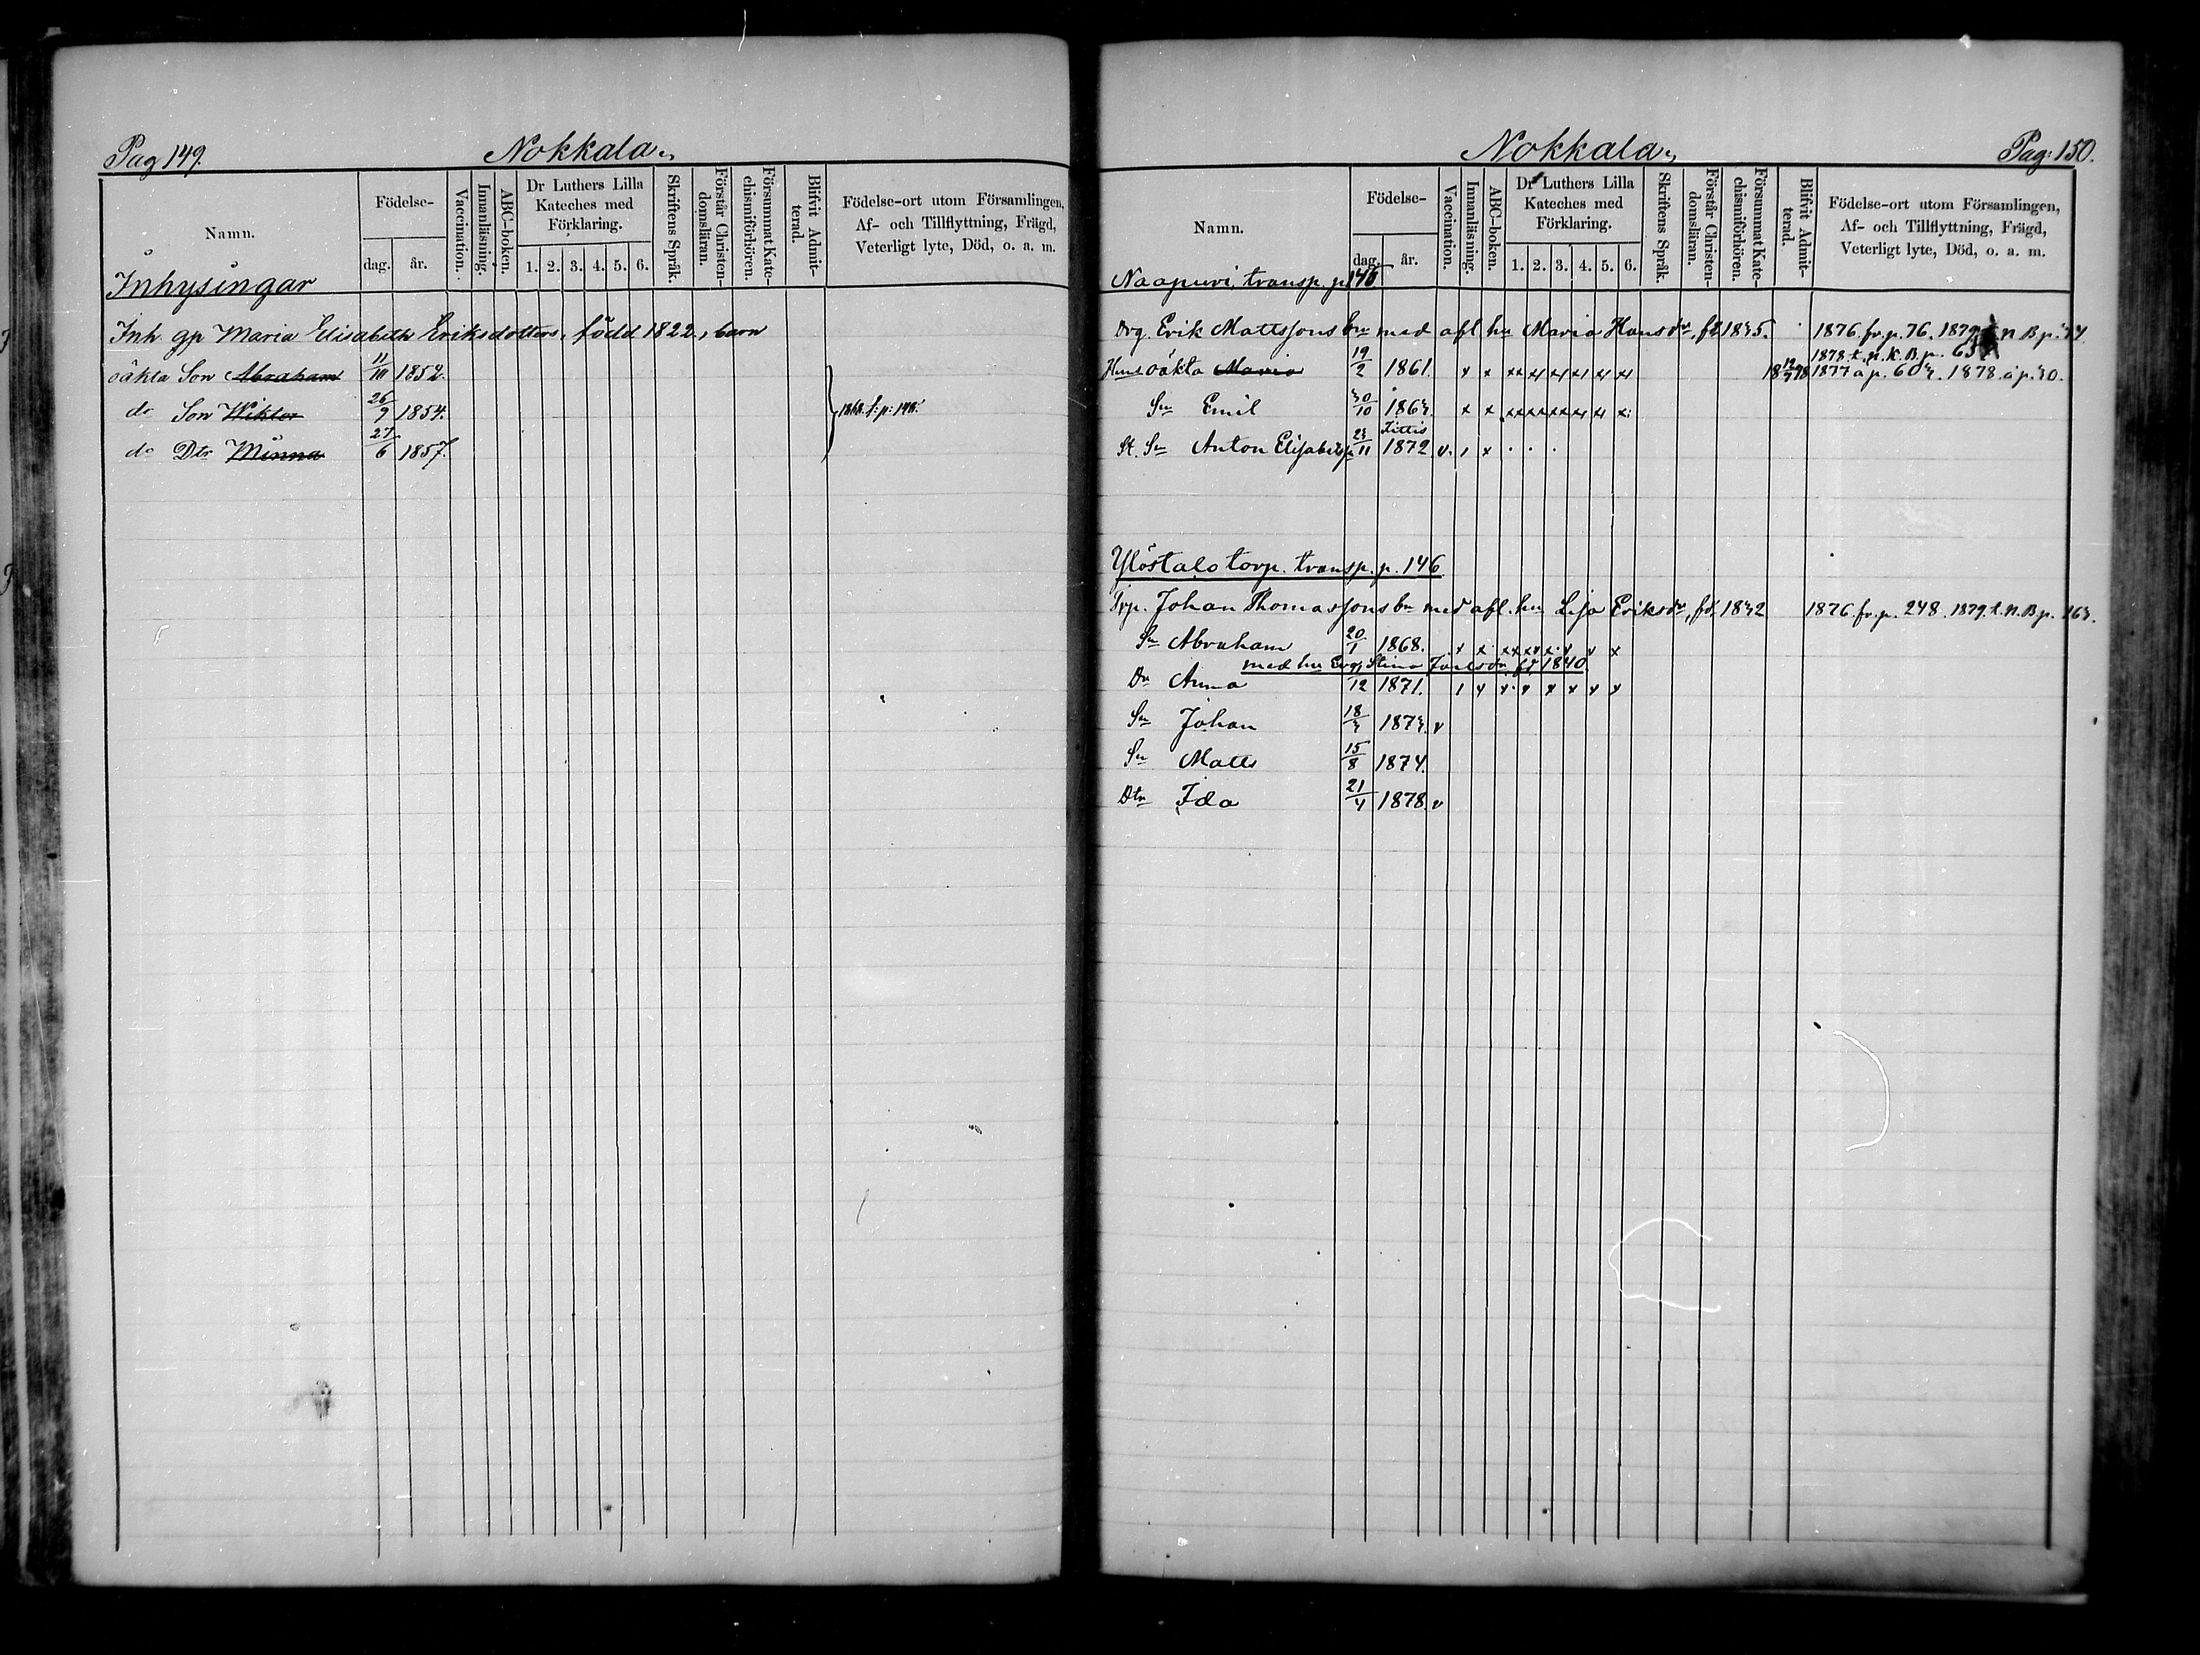 Pag 149. Nokkala
Namn. Födelse- dag. år. Vaccination. Innanläsning. ABC-boken. Dr Luthers Lilla Kateches med Förklaring. 1. 2. 3. 4. 5. 6. Skriftens Språk. Förstår Christendomsläran. Försummat Katechismiförhören. Blifvit Admitterad. Födelse-ort utom Församlingen, Af- och Tillflyttning, Frägd, Veterligt lyte, Död, o. a. m.
Inhysingar
Inh. gp Maria Elisabeth Eriksdotters, född 1822, barn
oäkta Son Abraham 11/10 1852.
do Son Wiktor 26/9 1854. 1868. f: p: 148.
do Dtr Minna 27/6 1857.
Nokkala Pag: 150.
Namn. Födelse- dag. år. Vaccination. Innanläsning. ABC-boken. Dr Luthers Lilla Kateches med Förklaring. 1. 2. 3. 4. 5. 6. Skriftens Språk. Förstår Christendomsläran. Försummat Katechismiförhören. Blifvit Admitterad. Födelse-ort utom Församlingen, Af- och Tillflyttning, Frägd, Veterligt lyte, Död, o. a. m.
Naapuri, transp. p.
Drg. Erik Mattssons bn med afl hu Maria Hansdr, fd 1835. 1876. fr. p. 76. 1879. t. N. B. p.
1878. t. p. K. B. p.
Hans oäkta Maria 19/2 1861. x x x x x x x x x 1877 å p. 1878 å p. 30.
Sn Emil 30/10 1863. x x x x x x x x x
Tittis
St. Sn Anton 23/11 1872 v.
Ylöstalo torp. transp. p. 146
Trp. Johan Thomassons bn med afl. hu Lisa Eriksdr, fd. 1832 1876 fr. p. 248. 1879. t. N. B. p. 163.
Sn Abraham 20/1 1868. x x x x x x x x
med hu Stina fd 1840
Dr Anna 12 1871.
Sn Johan 18/3 1873. v
Sn Matts 15/8 1874.
Dtr Ida 21/4 1878. v